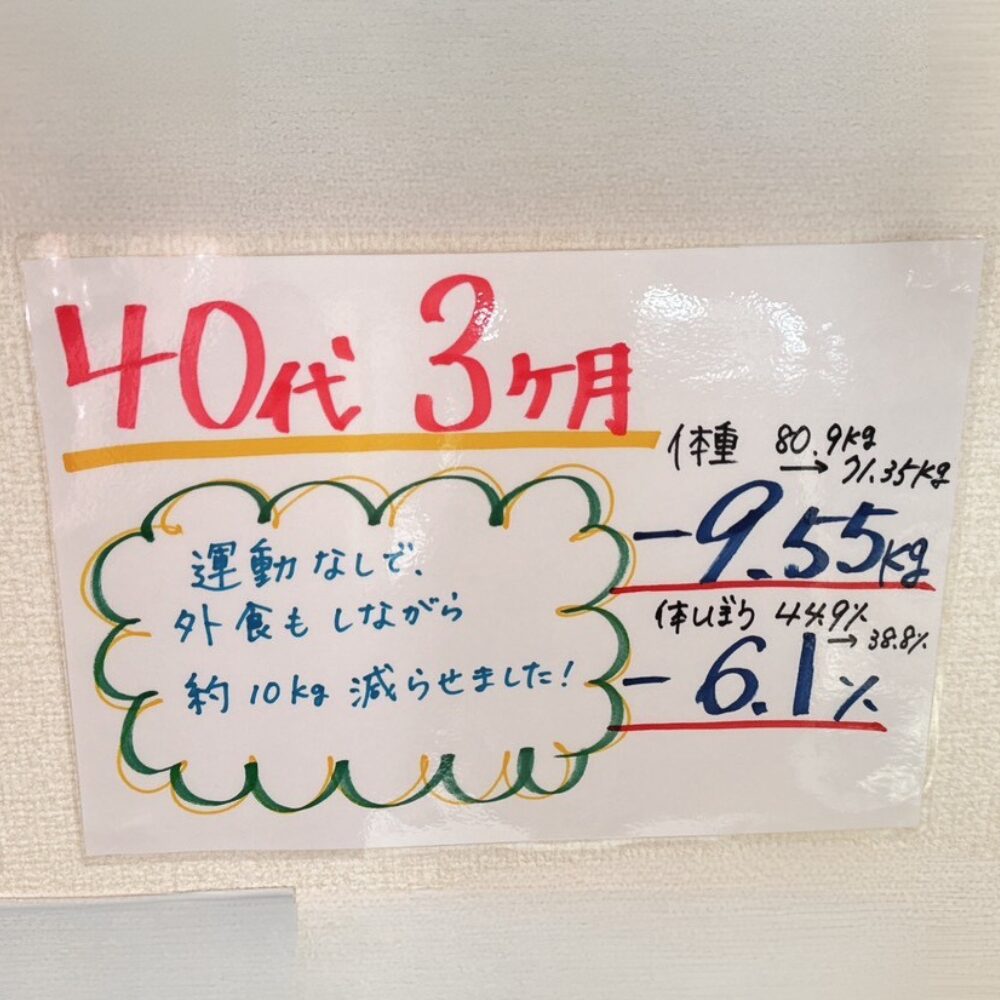 40代 3ヶ月
運動なしで、
外食もしながら
約10kg 減らせました!
体重 80.9kg
→ 71.35kg
-9.55kg
体しぼう 44.9%
→ 38.8%
-6.1%